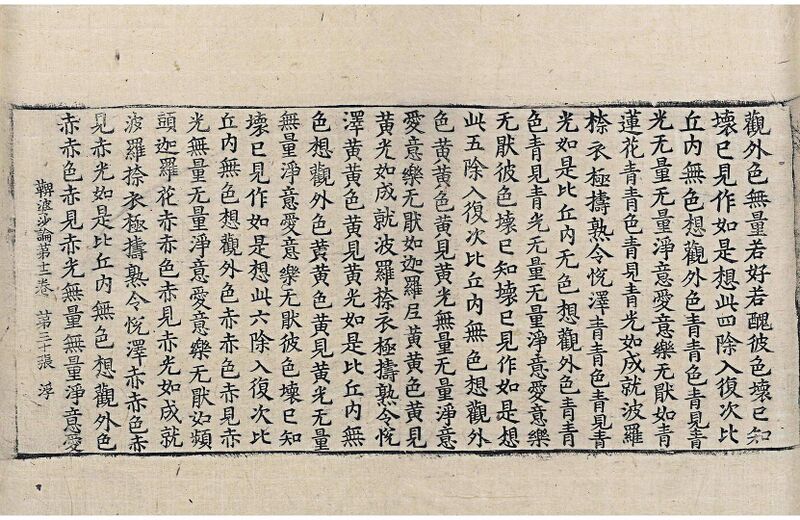 觀外色無量若好若醜彼色壞已知
壞已見作如是想此四除入復次比
丘內無色想觀外色青青色青見青
光无量无量淨意愛意樂无猒如青
蓮花青青色青見青光如成就波羅
㮈衣極擣熟令悅澤青青色青見青
光如是比丘內无色想觀外色青青
色青見青光无量无量淨意愛意樂
无猒彼色壞已知壞已見作如是想
此五除入復次比丘內無色想觀外
色黃黃色黃見黃光無量无量淨意
愛意樂无猒如迦羅尼黃黃色黃見
黃光如成就波羅㮈衣極擣熟令悅
澤黃黃色黃見黃光如是比丘內無
色想觀外色黃黃色黃見黃光无量
無量淨意愛意樂无猒彼色壞已知
壞已見作如是想此六除入復次比
丘內無色想觀外色赤赤色赤見赤
光無量无量淨意愛意樂无猒如頻
頭迦羅花赤赤色赤見赤光如成就
波羅㮈衣極擣熟令悅澤赤赤色赤
見赤光如是比丘內無色想觀外色
赤赤色赤見赤光無量無量淨意愛
鞞婆沙論第十二卷 第三十張 浮